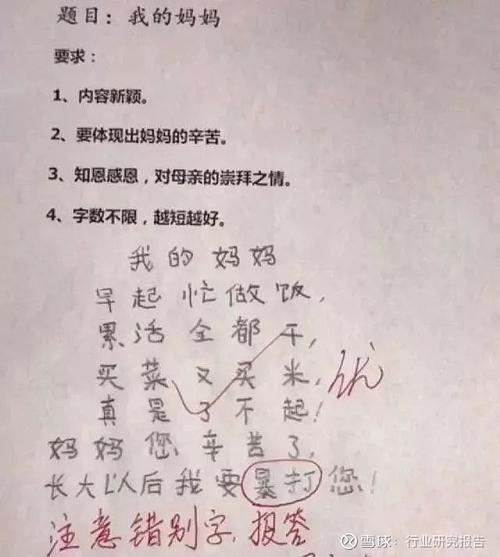 题目：我的妈妈
要求：
1、内容新颖。
2、要体现出妈妈的辛苦。
3、知恩感恩，对母亲的崇拜之情。
4、字数不限，越短越好。
我的妈妈
早起忙做饭，
累活全都干，
买菜又买米，
真是了不起！
优
妈妈您辛苦了，
长大以后我要暴打您！
注意错别字，报答
雪球：行业研究报告